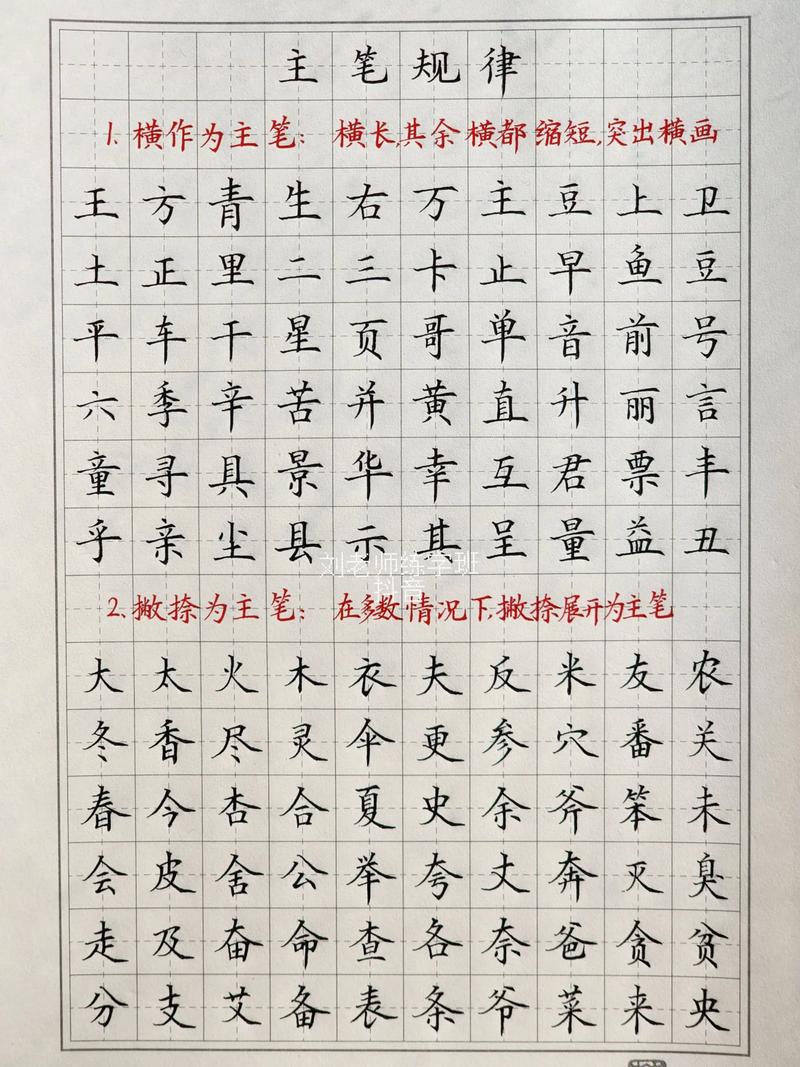 主笔规律
1、横作为主笔：横长,其余横都缩短,突出横画
王方青生右万主豆上卫
土正里二三卡止早鱼豆
平车干星页哥单音前号
六季辛苦并黄直升丽言
童寻具景华幸互君票丰
乎亲尘县示其呈量益丑
刘老师练字班
抖音
2、撇捺为主笔：在多数情况下,撇捺展开为主笔
大太火木衣夫反米友农
冬香尽灵伞更参穴番关
春今杏合夏史余斧笨未
会皮舍公举夸丈奔灭臭
走及奋命查各奈爸贪贫
分支艾备表条爷菜来央